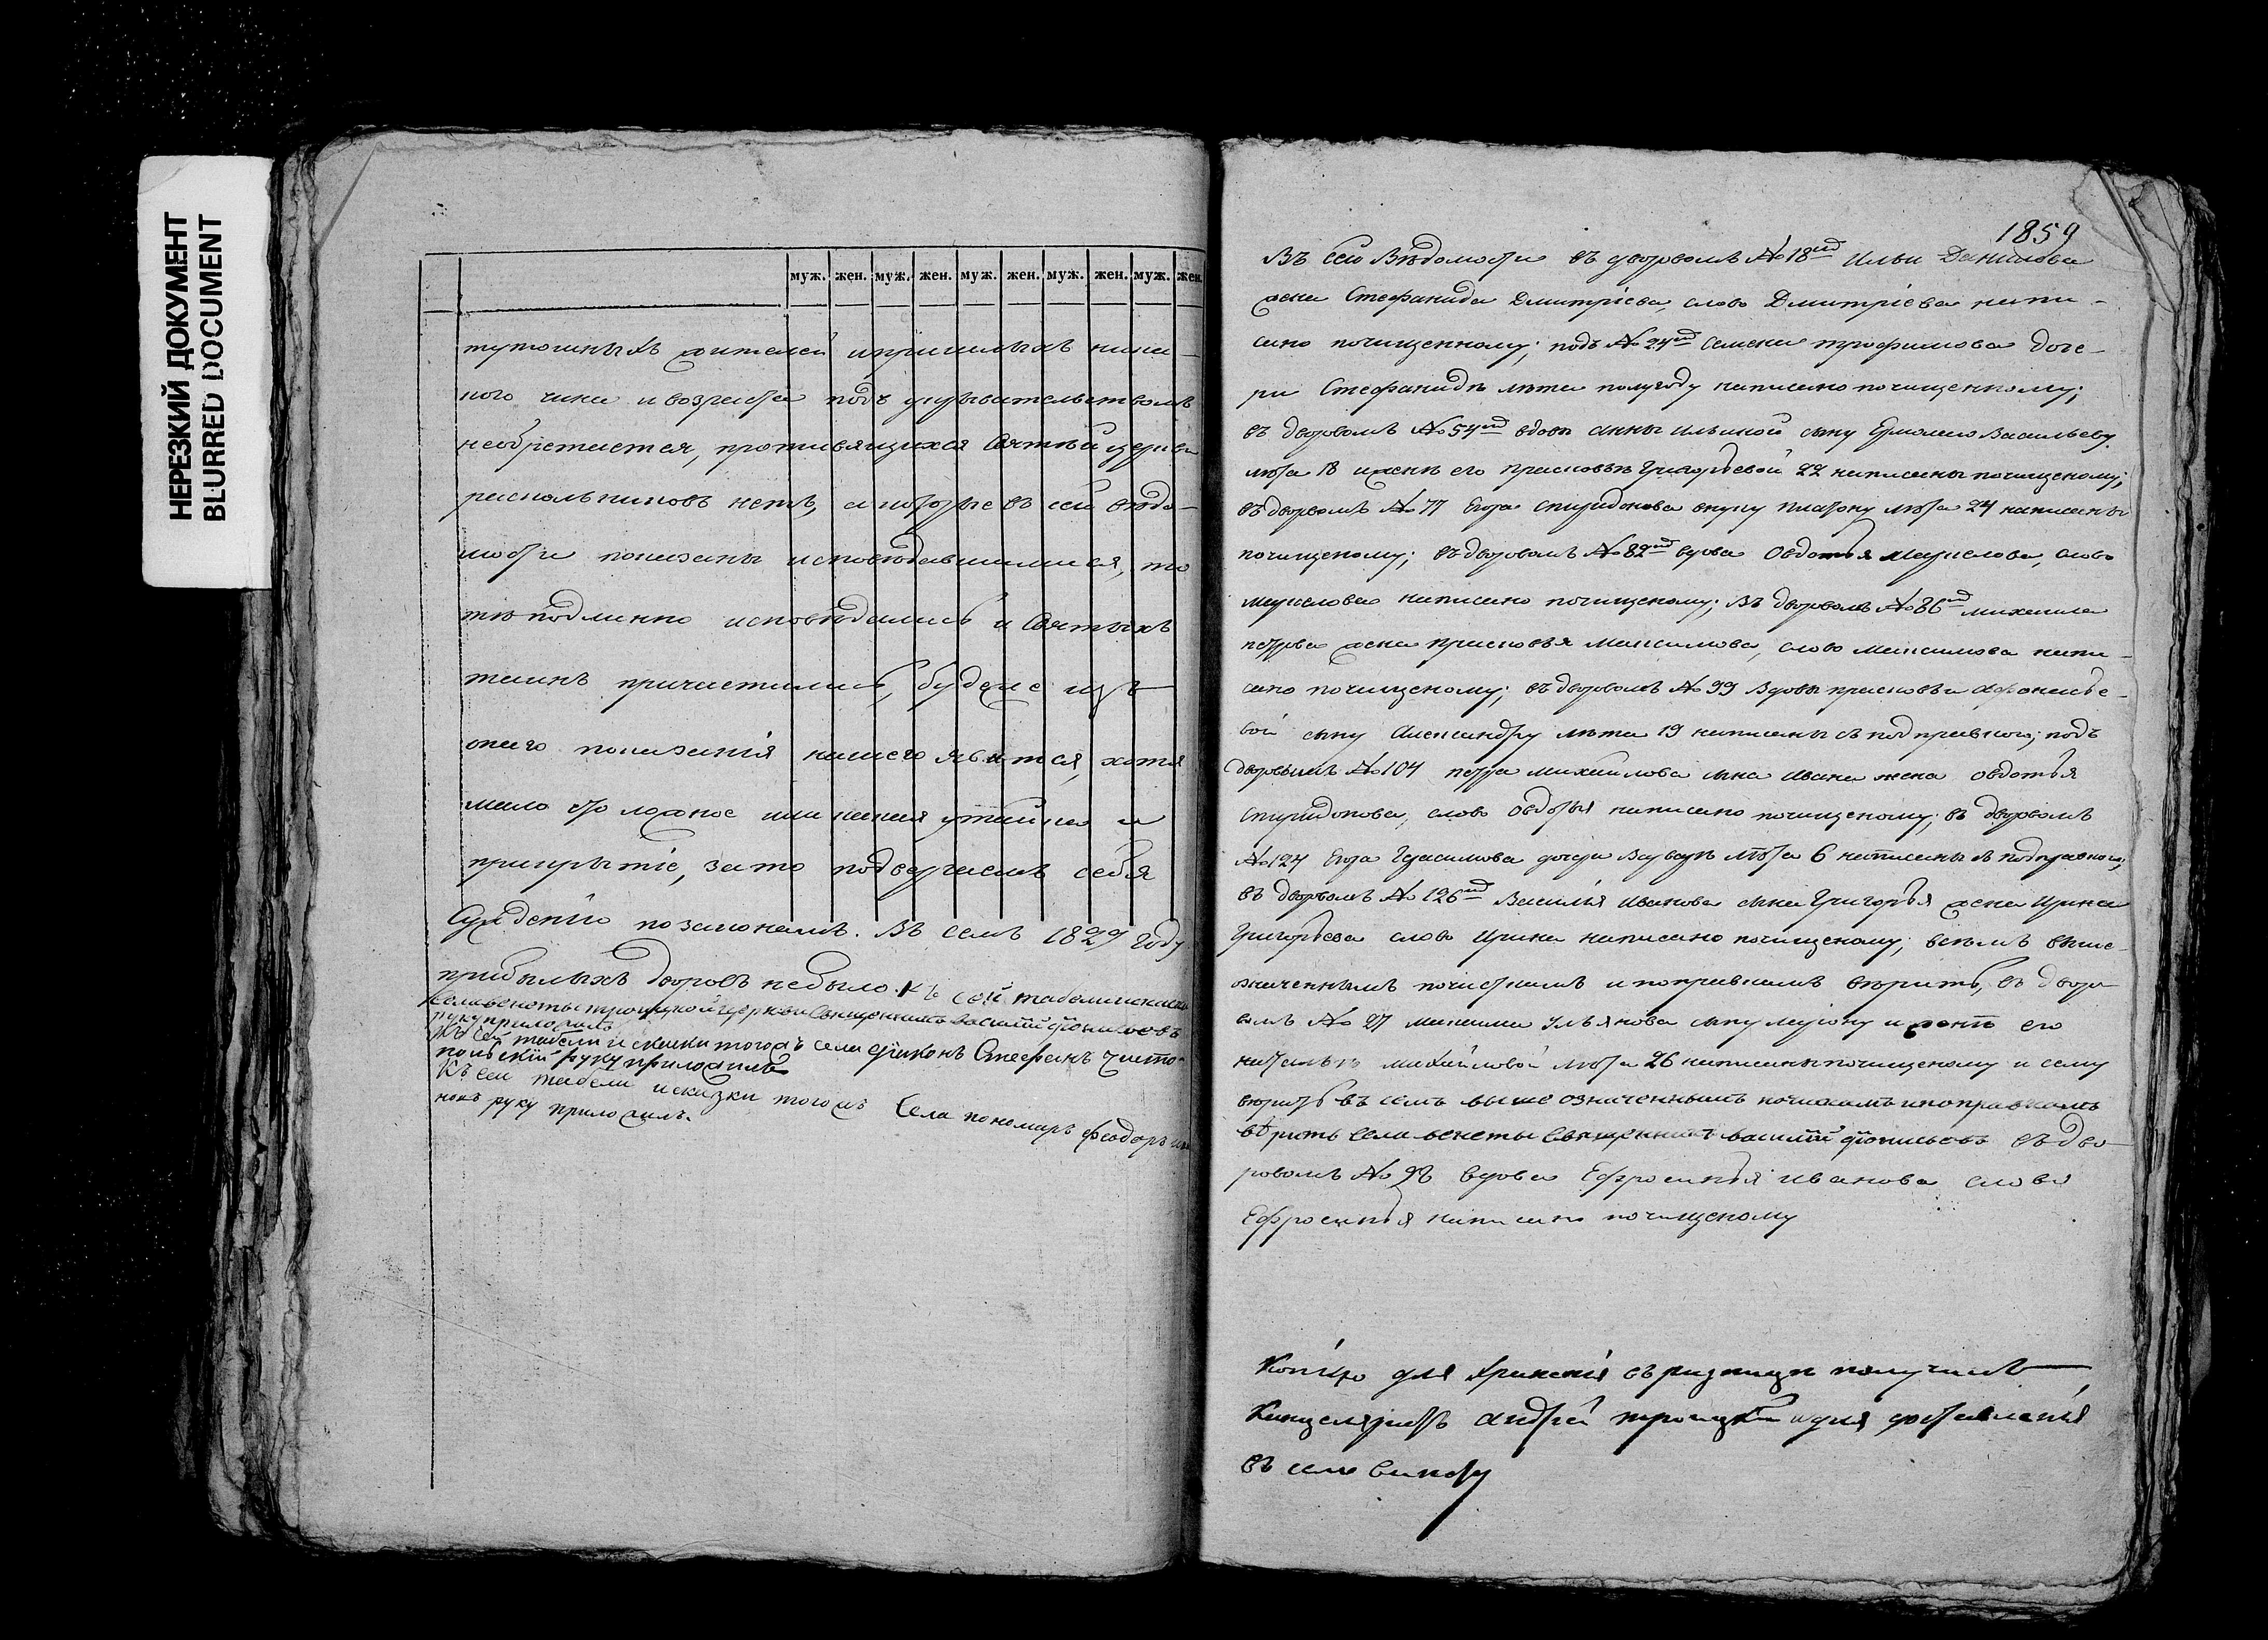 НЕРЕЗКИЙ ДОКУМЕНТ
BLURRED DOCUMENT
муж. жен. муж. жен. муж. жен. муж. жен. муж. жен.
тутошныхъ жителей и пришлыхъ ника-
кого чина и возраста подъ укрывательствомъ
необретается, противящихся Святѣй церкви
раскольниковъ нетъ, а которые въ сей вѣдо-
мости показаны исповѣдавшимися, то
тѣ подлинно исповѣдались и Святыхъ
таинъ причастились, будеже изъ
онаго показанія нашего явится, хотя
мало что ложное или какая утайка и
прикрытіе, за то подвергаемъ себя
Сужденію по законамъ. Въ семъ 1829 году
прибылыхъ дворовъ небыло. Къ сей табели и скаски
села венеты троицкой церкви Священникъ василій
руку приложилъ
Къ сей табели и скаски тогожъ села діаконъ Стефанъ чисто-
польскій руку приложилъ
Къ сей табели и сказки тогожъ Села пономарь Феодоръ
руку приложилъ.
1859
Въ сей Вѣдомости въ дворовомъ № 18мъ Ильи Данилова
жена Стефанида Дмитріева, слово Дмитріева напи-
сано почищенному; подъ № 24мъ Семена трофимова доче-
ри Стефанидѣ лѣта полугоду написано почищенному;
въ дворовомъ № 54мъ вдовы анны ильиной сыну Ермолаю Васильеву
лѣта 18 и женѣ его прасковьѣ Григорьевой 22 написаны почищеному;
въ дворовомъ № 77 Егора спиридонова внуку платону лѣта 24 написаны
почищеному; въ дворовомъ № 82мъ вдова Овдотья маркелова, слово
маркелова написано почищеному; Въ дворовомъ № 86мъ михаила
петрова жена прасковья максимова, слово максимова напи-
сано почищеному; въ дворовомъ № 99 Вдовы прасковьи афонасье-
вой сыну Александру лѣта 19 написаны съ подправкою; подъ
дворовымъ № 104 петра михаилова сына ивана жена овдотья
спиридонова, слово овдотья написано почищеному; въ дворовомъ
№ 124 Егора Герасимова дочери Варварѣ лѣта 6 написаны съ подправкою;
въ дворовомъ № 126мъ Василья иванова сына Григорья жена ирина
Григорьева слово ирина написано почищеному; всѣмъ выше-
означеннымъ почисткамъ и поправкамъ вѣрить, въ дворо-
вомъ № 27 максима ульянова сыну мирону и женѣ его
натальѣ михайловой лѣта 26 написаны почищеному и сему
вѣрить въ семъ выше означеннымъ почискамъ и поправкамъ
вѣрить села венеты Священникъ василій въ дво-
ровомъ № 98 вдова Ефросинья иванова слово
Ефросинья написано почищеному
Копію для храненія въ ризницы получилъ
Канцеляристъ андрей троицкій и для доставленія
въ село